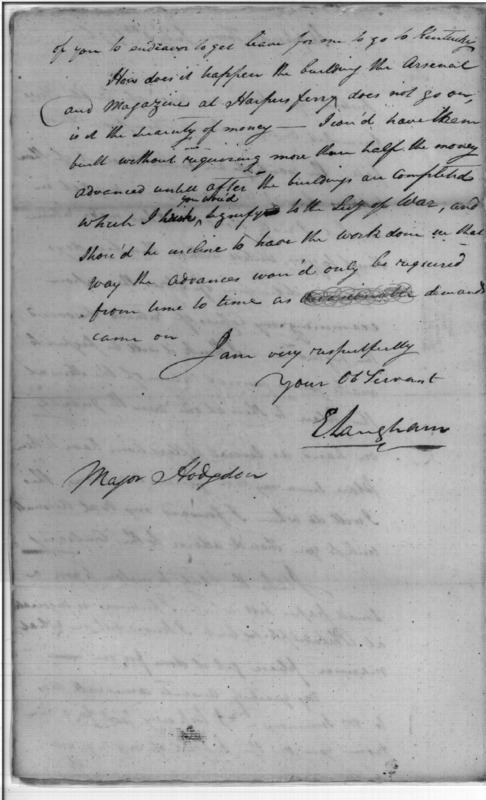 of you to endeavor to get leave for me to go to Kentucky
How does it happen the building the Arsenal
and Magazine at Harpers ferry does not go on,
is it the scarcity of money — I cou'd have them
built without requiring more than half the money
advanced untill after the buildings are completed
you wou'd
which I wish, signify to the Secy of War, and
Shou'd he incline to have the work done in that
way the advances wou'd only be required
from time to time as demands
came on
I am very respectfully
Your Ob Servant
E. Langham
Major Hodgdon